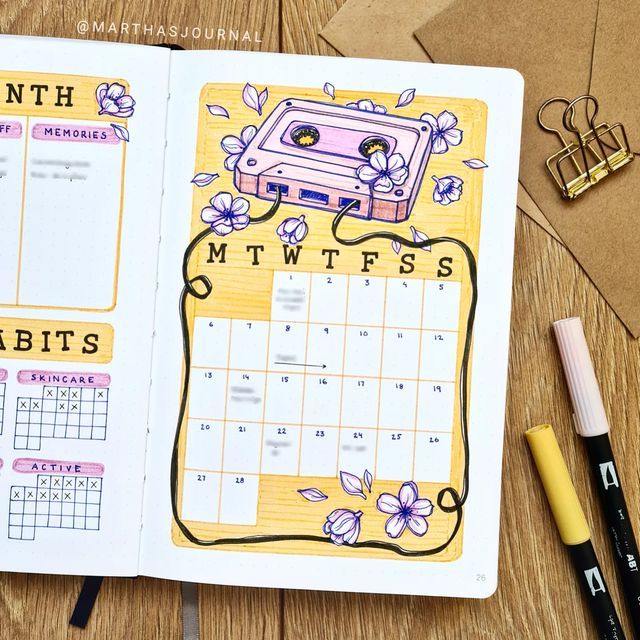 @MARTHASJOURNAL
NTH
FF
MEMORIES
ABITS
SKINCARE
ACTIVE
M T W T F S S
1 2 3 4 5
6 7 8 9 10 11 12
13 14 15 16 17 18 19
20 21 22 23 24 25 26
27 28
26
ABT